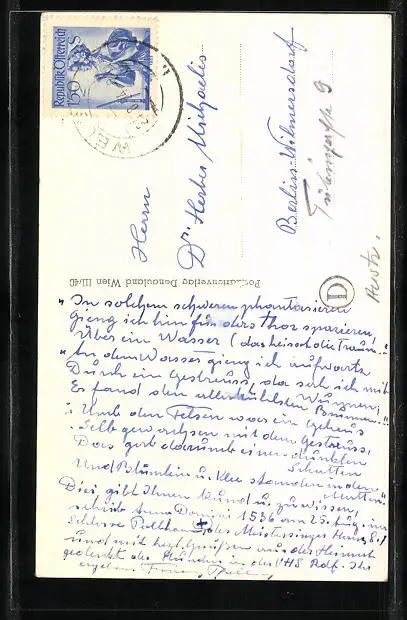 Republik Österreich
150
S
Herrn
Dr. Herbert Michaelis
Berlin-Wilmersdorf
9
Postkartenverlag Donauland Wien III/40
D
"In solchem schwerm phantasieren
Gieng ich hin für das Thor spazieren,
Über ein Wasser (das heisst die Traun."
"An dem Wasser gieng ich aufwarts
Durch ein Gestreuss, da sah ich mit Wunnen;
Es fand den allerkühlsten Brunnen!"
"Umb den Felsen war ein
Selb gewachsen mit dem Gestreuss,
Das gab darumb einen dunklen Schatten
Und Blümlein u. Klee standen in den Matten."
Dies gibt Ihnen Kund u. zu wissen,
schrib Anno Domini 1536 am 25. Aug. im
Schlosse der Meistersinger Hans S.!
und mit herzl. Grüßen aus der Heimat
gedenkt der Stunden in der VHS Ihr
ergeben. Franz